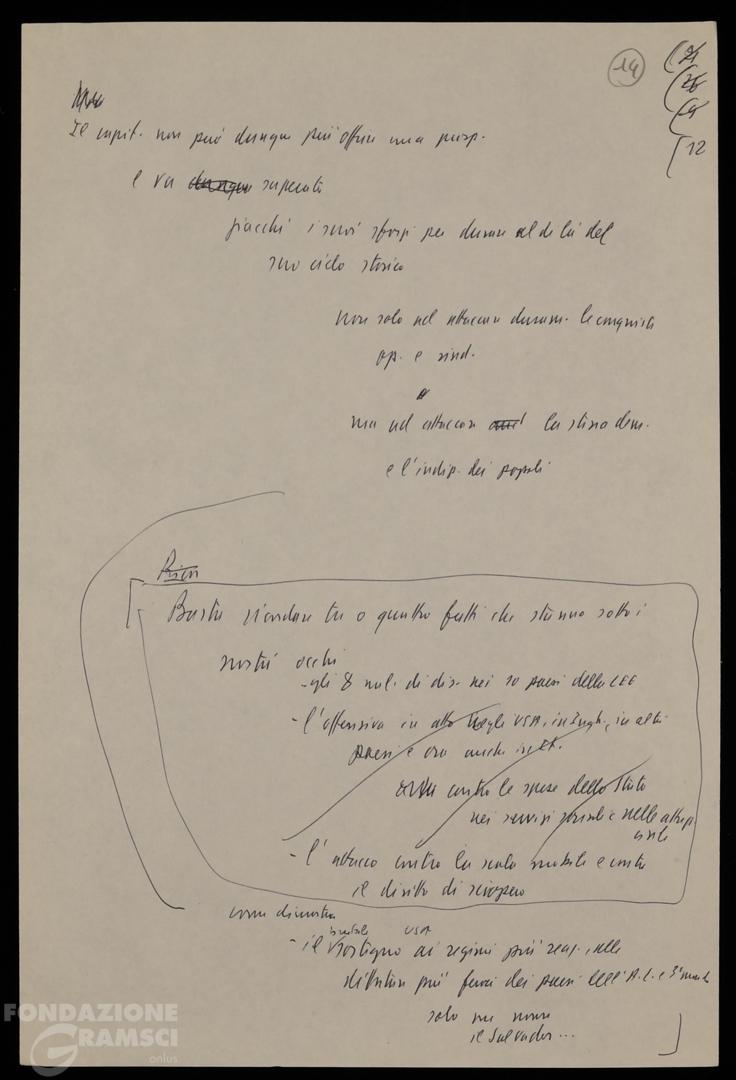 14
24
26
12
Il capit. non può dunque più offrire una prosp.
e va dunque superato
giacché i suoi sforzi per durare al di là del
suo ciclo storico
non solo ad attaccare duram. le conquiste
op. e sind.
ma ad attaccare la stessa dem.
e l'indip. dei popoli
Basta ricordare tre o quattro fatti che stanno sotto i
nostri occhi
- gli 8 mil. di dis. nei 10 paesi della CEE
- l'offensiva in atto negli USA, in Ingh., in altri
paesi e ora anche in It.
contro le spese dello Stato
nei servizi sociali e nelle attrezz.
civili
- l'attacco contro la scala mobile e contro
il diritto di sciopero
come dimostra
brutale USA
- il sostegno ai regimi più reaz., alle
dittature più feroci dei paesi dell'A.L. e 3° mondo
solo un nome
il Salvador...
FONDAZIONE
GRAMSCI
onlus